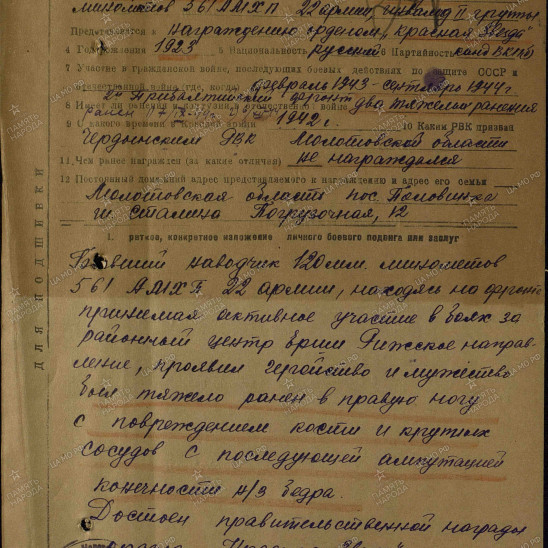 минометов 561 АМХП 22 армии, инвалид II группы
Представляется к награждению орденом „Красная Звезда"
4 Год рождения 1923 5 Национальность русский 6 Партийность канд. ВКП(б)
7 Участие в гражданской войне, последующих боевых действиях по защите СССР и
отечественной войне (где, когда) февраль 1943 - сентябрь 1944 г.
2й Прибалтийский фронт
8 Имеет ли ранения и отечественной войне два тяжелых ранения
9 С какого времени в Красной 1942 г. 10 Каким РВК призван
Чердынским РВК Молотовской области
11. Чем ранее награжден (за какие отличия) не награждался
12 Постоянный домашний адрес представляемого к награждению и адрес его семьи
Молотовская область пос. Половинка
ш. Сталина Погрузочная, 12
I. раткое, конкретное изложение личного боевого подвига или заслуг
Бывший наводчик 120 мм. минометов
561 АМХП 22 армии, находясь на фронте
принимая активное участие в боях за
районный центр Эргли Рижское направ-
ление, проявил геройство и мужество
был тяжело ранен в правую ногу
с повреждением кости и крупных
сосудов с последующей ампутацией
конечности н/з бедра.
Достоен правительственной награды
ДЛЯ ПОДШИВКИ
ПАМЯТЬ НАРОДА
ЦАМО.РФ